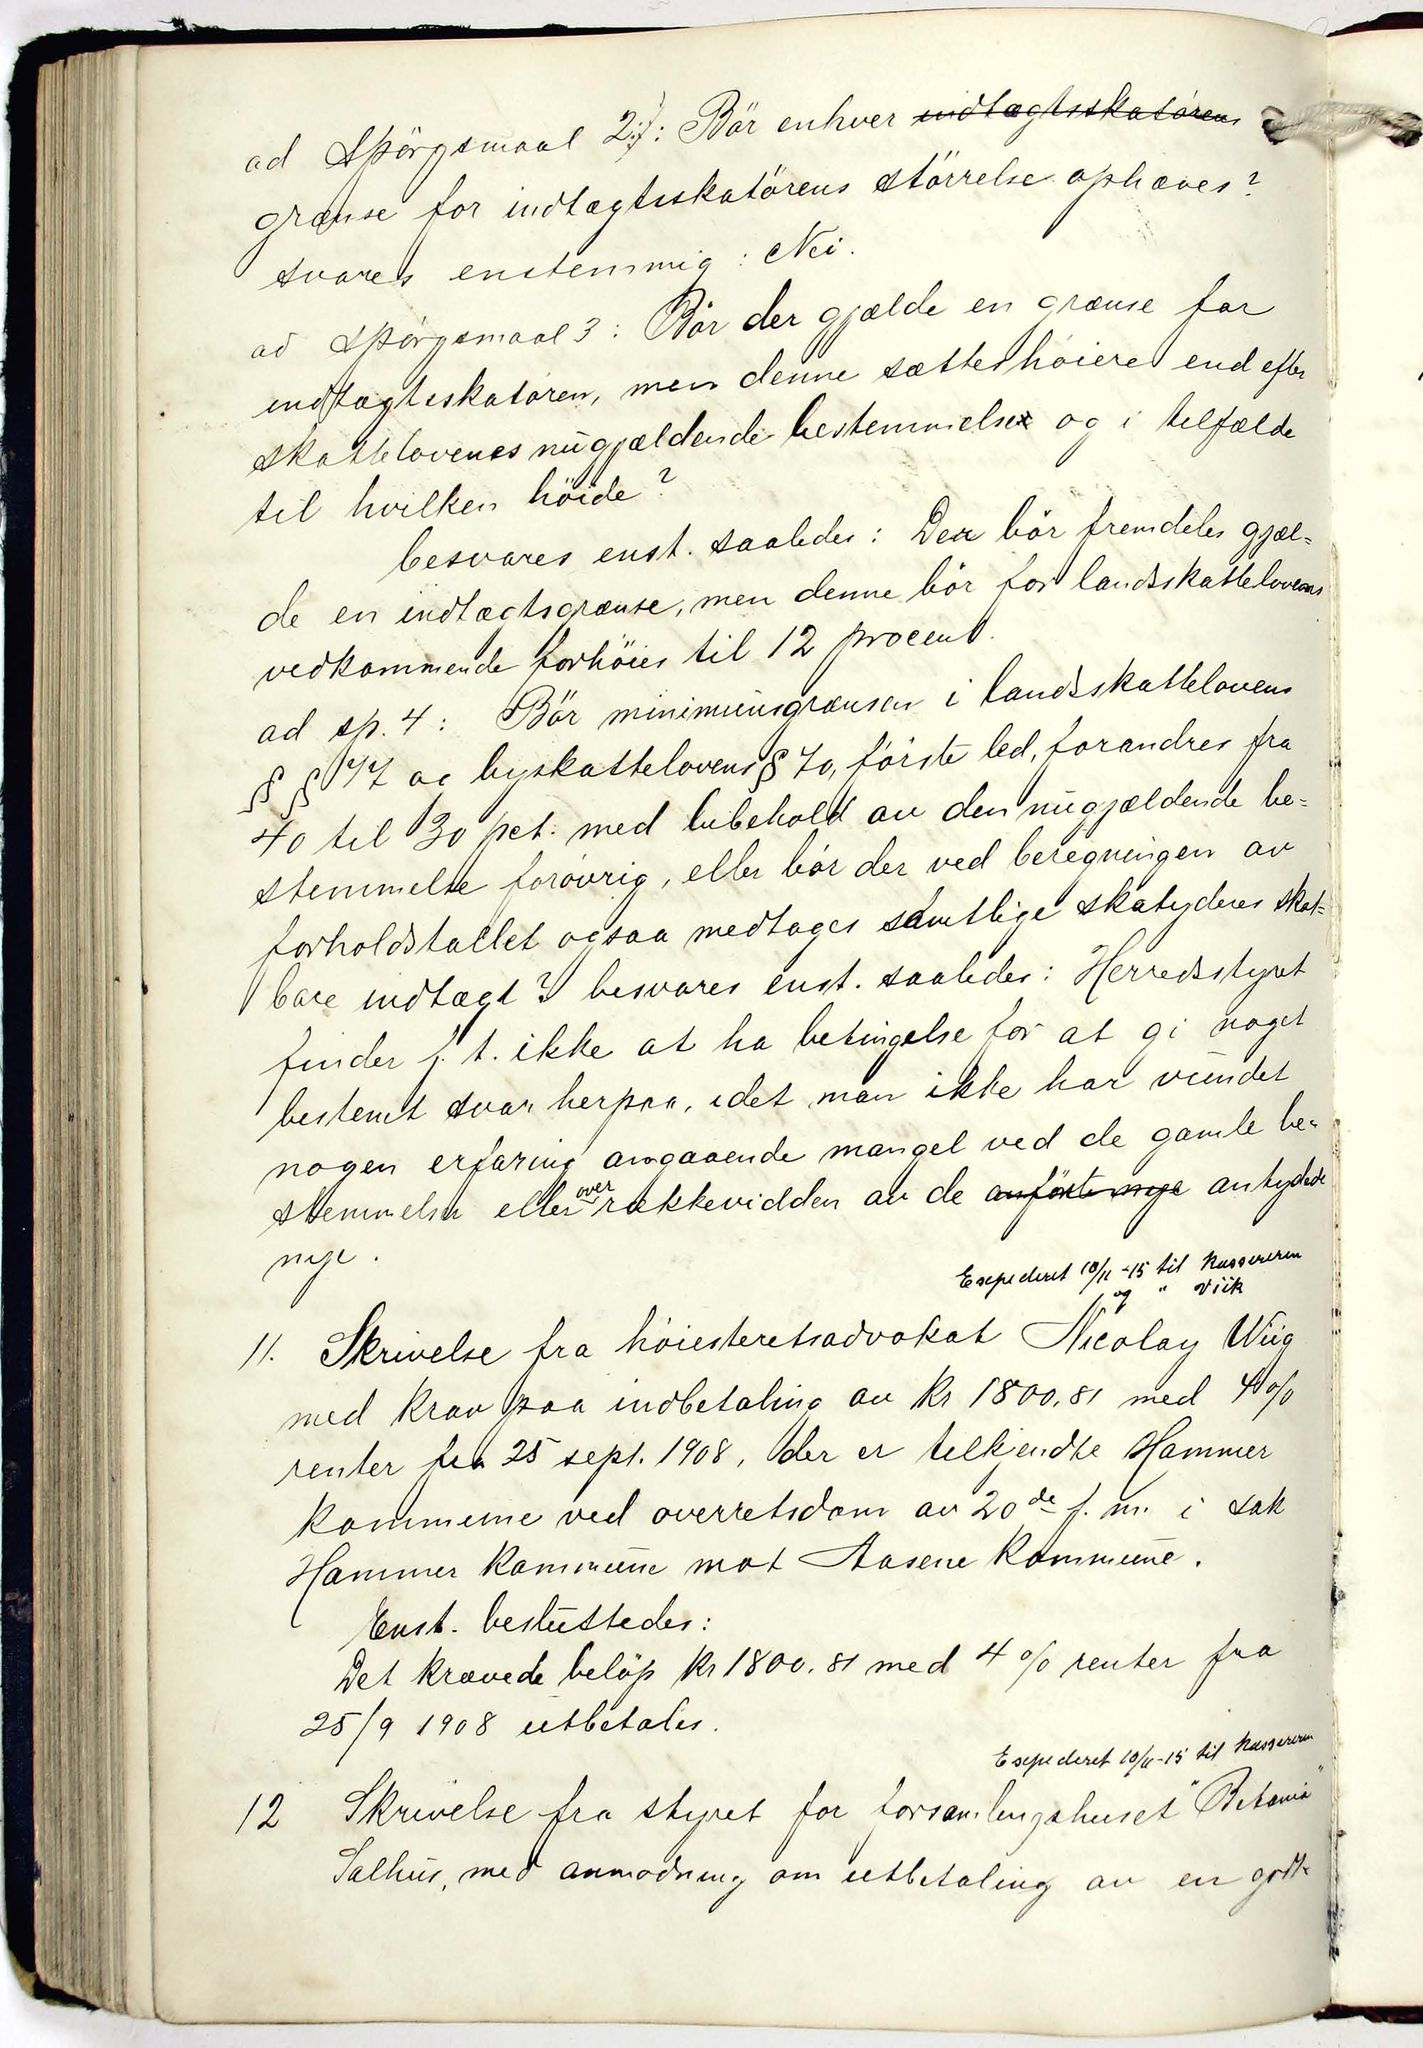 ad Spörgsmaal 2: Bör enhver indtægtsskatörens
grænse for indtægtsskatörens störrelse ophæves?
svares enstemmig: Nei.
ad Spörgsmaal 3: Bör der gjælde en grænse for
indtægtsskatören, men denne sættes höiere end efter
skattelovenes nugjældende bestemmelse og i tilfælde
til hvilken höide?
besvares enst. saaledes: Der bör fremdeles gjæl-
de en indtægtsgrænse, men denne bör for landsskattelovens
vedkommende forhöies til 12 procent.
ad sp. 4: Bör minimumsgrænsen i landsskattelovens
§§ 77 og byskattelovens § 70, förste led, forandres fra
40 til 30 pct. med bibehold av den nugjældende be-
stemmelse forövrig, eller bör der ved beregningen av
forholdstallet ogsaa medtages samtlige skatyderes skat-
bare indtægt? besvares enst. saaledes: Herredsstyret
finder f. t. ikke at ha betingelse for at gi noget
bestemt svar herpaa, idet man ikke har vundet
nogen erfaring angaaende mangel ved de gamle be-
stemmelser eller over rækkevidden av de anförte nye antydede
nye.
Expederet 10/11-15 til kassereren
og " Viik
11. Skrivelse fra höiesteretsadvokat Nicolay Wiig
med krav paa indbetaling av kr 1800,81 med 4 %
renter fra 25 sept. 1908, der er tilkjendte Hammer
kommune ved overretsdom av 20de f. m. i sak
Hammer kommune mot Aasene kommune.
Enst. besluttedes:
Det krævede belöp kr 1800,81 med 4 % renter fra
25/9 1908 utbetales.
Expederet 10/11-15 til kassereren
12 Skrivelse fra styret for forsamlingshuset "Betania"
Salhus, med anmodning om utbetaling av en godt-